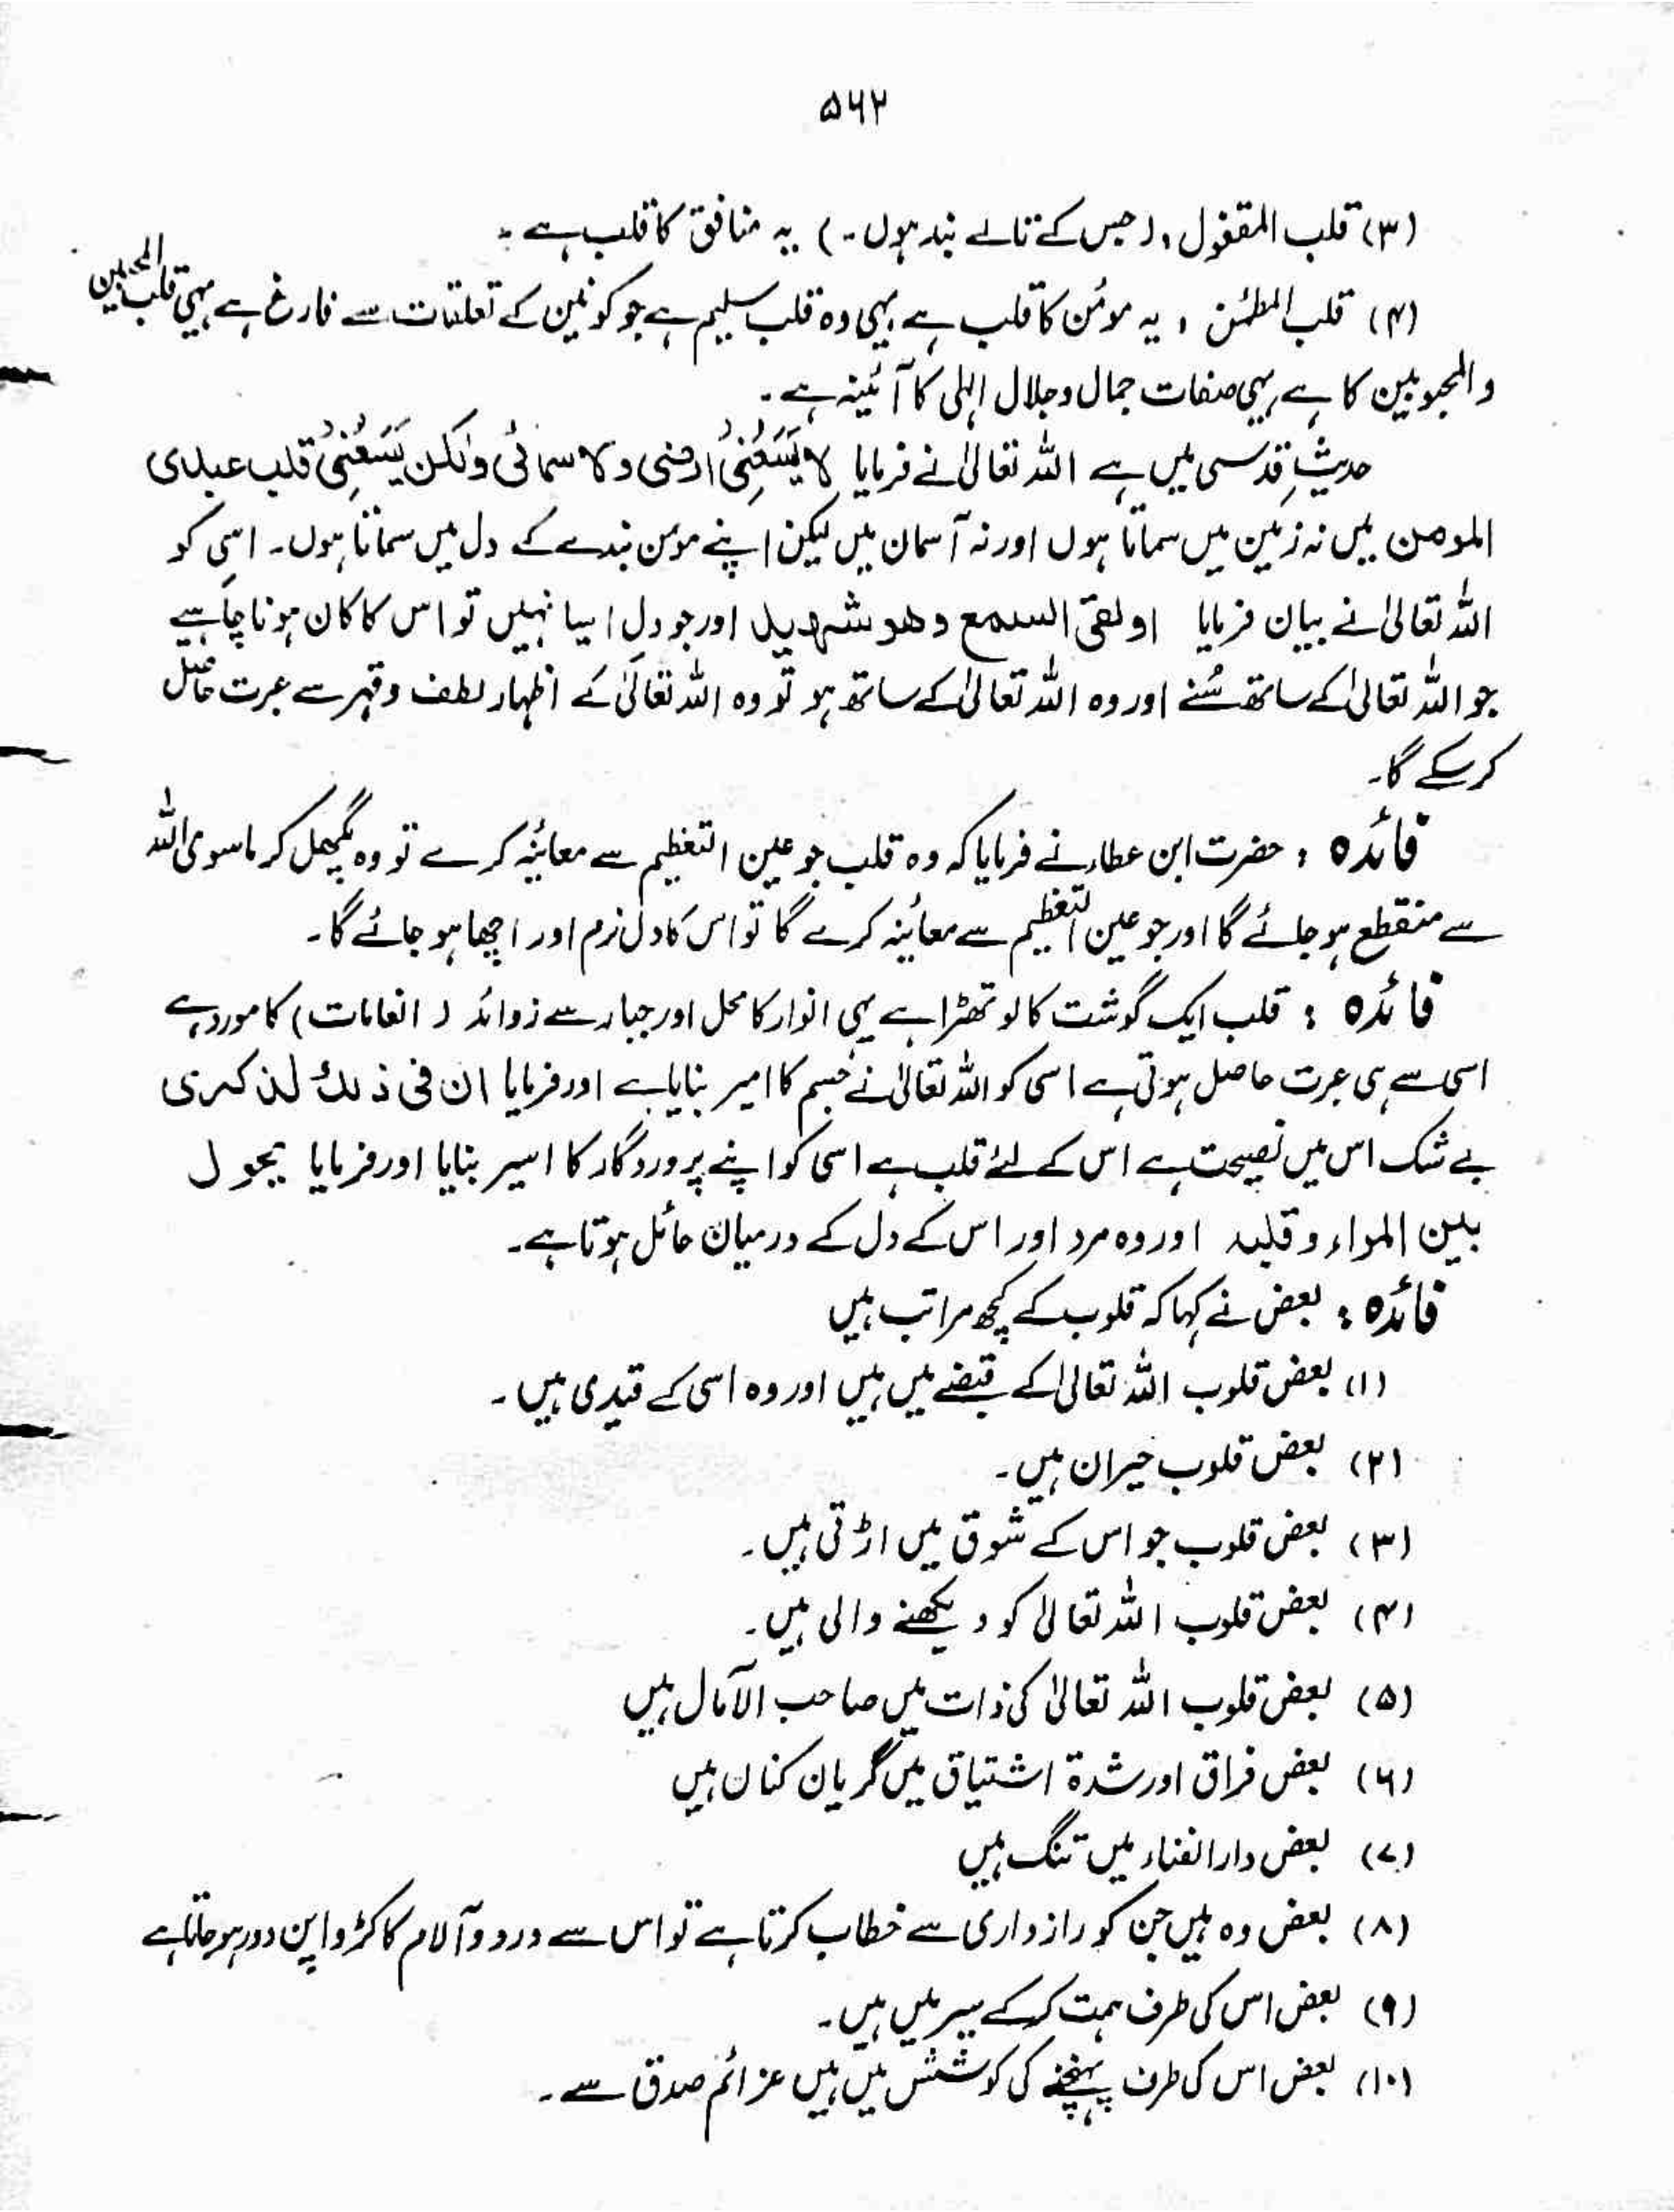 ۵۶۲
(۳) قلب المقفول، (جس کے تالے بند ہوں۔) یہ منافق کا قلب ہے۔
(۴) قلب المطمئن، یہ مومٔن کا قلب ہے یہی وہ قلب سلیم ہے جو کونین کے تعلقات سے فارغ ہے یہی قلب المحبین
والمحبوبین کا ہے یہی صفات جمال و جلال الہٰی کا آئینہ ہے۔
حدیثِ قدسی میں ہے اللہ تعالیٰ نے فرمایا لا یَسَعُنِیُ ارضی ولا سمائی ولکن یَسَعُنِیُ قلب عبدی
المومن میں نہ زمین میں سماتا ہوں اور نہ آسمان میں لیکن اپنے مومن بندے کے دل میں سماتا ہوں۔ اسی کو
اللہ تعالیٰ نے بیان فرمایا اولقی السمع وھو شہید اور جو دل ایسا نہیں تو اس کا کان ہونا چاہیے
جو اللہ تعالیٰ کے ساتھ سُنے اور وہ اللہ تعالیٰ کے ساتھ ہو تو وہ اللہ تعالیٰ کے اظہار لطف و قہر سے عبرت حاصل
کر سکے گا۔
فائدہ : حضرت ابن عطاء نے فرمایا کہ وہ قلب جو عین التعظیم سے معائنہ کرے تو وہ پگھل کر ماسوی اللہ
سے منقطع ہو جائے گا اور جو عین التعظیم سے معائنہ کرے گا تو اس کا دل نرم اور اچھا ہو جائے گا۔
فائدہ : قلب ایک گوشت کا لوتھڑا ہے یہی انوار کا محل اور جبار سے زوائد ( انعامات) کا مورد ہے
اسی سے ہی عبرت حاصل ہوتی ہے اسی کو اللہ تعالیٰ نے جسم کا امیر بنایا ہے اور فرمایا ان فی ذلک لذکری
بے شک اس میں نصیحت ہے اس کے لئے قلب ہے اسی کو اپنے پروردگار کا اسیر بنایا اور فرمایا یحول
بین المراء وقلبہ اور وہ مرد اور اس کے دل کے درمیان حائل ہوتا ہے۔
فائدہ : بعض نے کہا کہ قلوب کے کچھ مراتب ہیں
(۱) بعض قلوب اللہ تعالیٰ کے قبضے میں ہیں اور وہ اسی کے قیدی ہیں۔
(۲) بعض قلوب حیران ہیں۔
(۳) بعض قلوب جو اس کے شوق میں اڑتی ہیں۔
(۴) بعض قلوب اللہ تعالیٰ کو دیکھنے والی ہیں۔
(۵) بعض قلوب اللہ تعالیٰ کی ذات میں صاحب الآمال ہیں
(۶) بعض فراق اور شدۃ اشتیاق میں گریان کناں ہیں
(۷) بعض دارالفناء میں تنگ ہیں
(۸) بعض وہ ہیں جن کو رازداری سے خطاب کرتا ہے تو اس سے درد و آلام کا کڑواپن دور ہو جاتا ہے
(۹) بعض اس کی طرف ہمت کرکے سیر میں ہیں۔
(۱۰) بعض اس کی طرف پہنچنے کی کوشش میں ہیں عزائم صدق سے۔